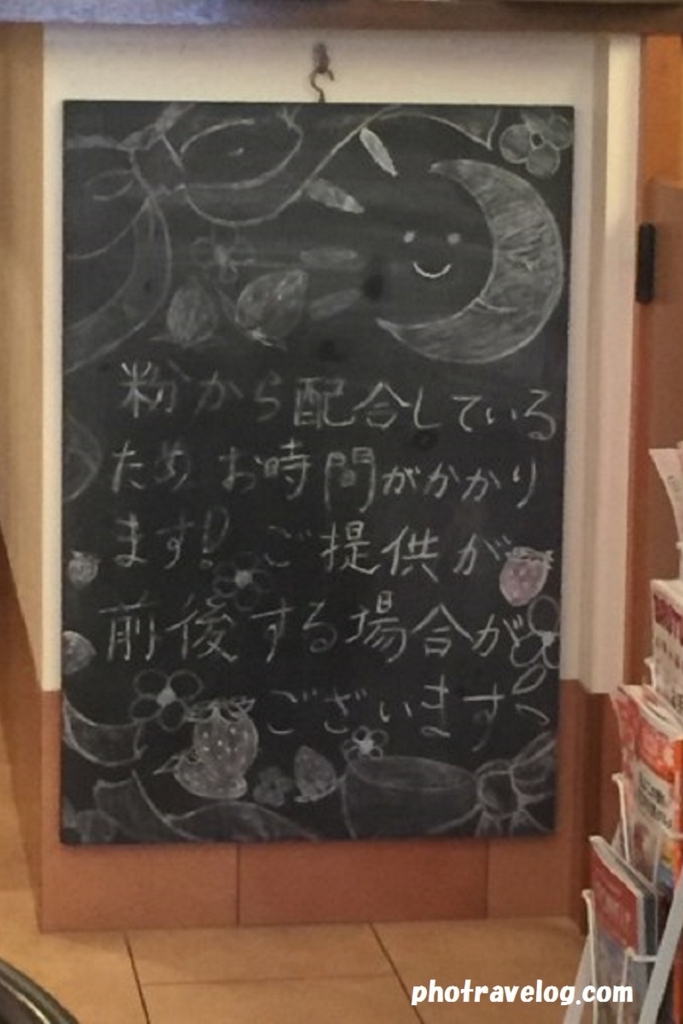 粉から配合している
ためお時間がかかり
ます!! ご提供が
前後する場合が
ございます
photravelog.com